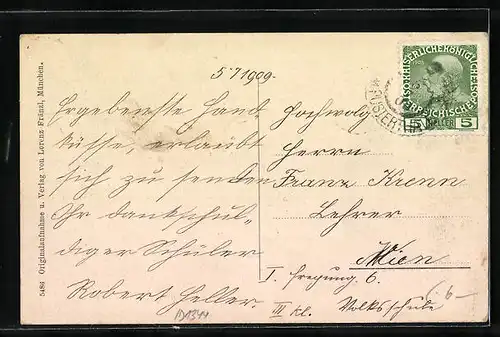 5 7 1909.
Ergebenste Hand-
küsse, erlaubt
sich zu senden
Ihr dankschul-
diger Schüler
Robert Heller.
Hochwolg.
Herrn
Franz Krenn
Lehrer
Wien
I. Freyung 6.
III Kl. Volksschule
5484 Originalaufnahme u. Verlag von Lorenz Fränzl, München.
KAISERLICHE KÖNIGLICHE
ÖSTERREICHISCHE POST
5 HELLER 5